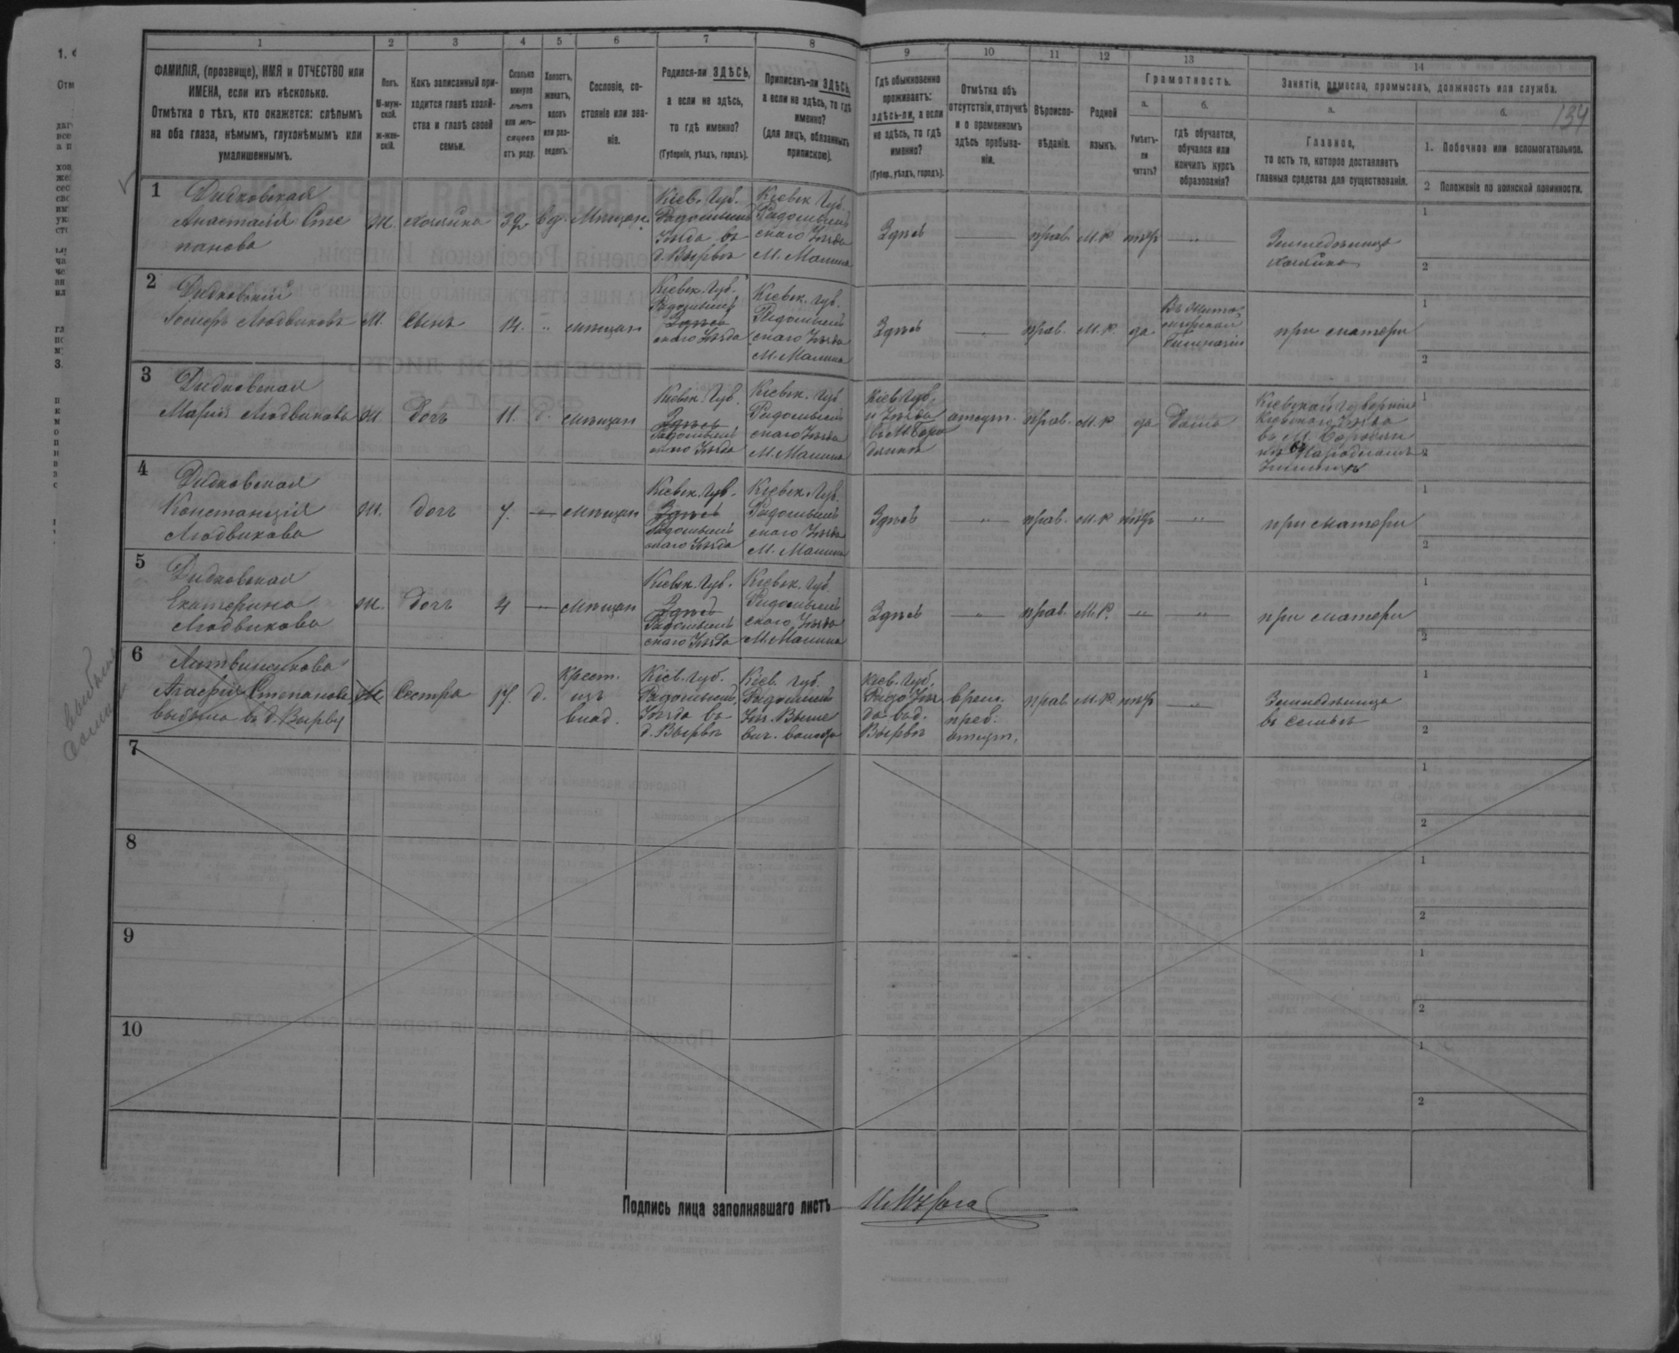 134
1 2 3 4 5 6 7 8 9 10 11 12 13 14
ФАМИЛІЯ, (прозвище), ИМЯ и ОТЧЕСТВО или
ИМЕНА, если ихъ нѣсколько.
Отмѣтка о тѣхъ, кто окажется: слѣпымъ
на оба глаза, нѣмымъ, глухонѣмымъ или
умалишеннымъ.
Полъ.
М-муж-
ской.
Ж-жен-
скій.
Какъ записанный при-
ходится главѣ хозяй-
ства и главѣ своей
семьи.
Сколько
минуло
лѣтъ
или мѣ-
сяцевъ
отъ роду.
Холостъ,
женатъ,
вдовъ
или раз-
веденъ.
Сословіе, со-
стояніе или зва-
ніе.
Родился-ли ЗДѢСЬ,
а если не здѣсь,
то гдѣ именно?
(Губернія, уѣздъ, городъ).
Приписанъ-ли ЗДѢСЬ,
а если не здѣсь, то гдѣ
именно?
(для лицъ, обязанныхъ
припискою).
Гдѣ обыкновенно
проживаетъ:
здѣсь-ли, а если
не здѣсь, то гдѣ
именно?
(Губер., уѣздъ, городъ).
Отмѣтка объ
отсутствіи, отлучкѣ
и о временномъ
здѣсь пребыва-
ніи.
Вѣроиспо-
вѣданіе.
Родной
языкъ.
Грамотность.
а.
Умѣетъ-
ли
читать?
б.
гдѣ обучается,
обучался или
кончилъ курсъ
образованія?
Занятіе, ремесло, промыселъ, должность или служба.
а.
Главное,
то есть то, которое доставляетъ
главныя средства для существованія.
б.
1. Побочное или вспомогательное.
2 Положеніе по воинской повинности.
1
Дидковская
Анастасія Сте
панова
Ж. хозяйка 32 вд. Мѣщан.
Кіев. Губ.
Радомысл
Уѣзда въ
д. Вырвѣ
Кіевск. Губ.
Радомысль
скаго Уѣзда
М. Малина
Здѣсь прав. М. Р
Земледѣлица
хозяйка
1
2
2
Дидковскій
Людвиковъ М. Сынъ 14. мѣщан
Кіевск. Губ.
Радомысль
Здѣсь
скаго Уѣзда
Кіевск. Губ.
Радомысль
скаго Уѣзда
М. Малина
Здѣсь прав. М. Р да.
Гимназіи
при матери
1
2
3
Дидковская
Марія Людвикова Ж. Дочь 11. д. мѣщан
Кіевск. Губ.
Здѣсь
Радомысль
скаго Уѣзда
Кіевск. Губ.
Радомысль
скаго Уѣзда
М. Малина
Кіев. Губ.
и Уѣзда
въ М. Боро
дянка
отсут. прав. М. Р да Дома
Кіевской Губерніи
Кіевскаго Уѣзда
въ М. Бородян
1
2
4
Дидковская
Констанція
Людвикова
Ж. Дочь 7. мѣщан
Кіевск. Губ.
Здѣсь
Радомысль
скаго Уѣзда
Кіевск. Губ.
Радомысль
скаго Уѣзда
М. Малина
Здѣсь прав. М. Р
при матери
1
2
5
Дидковская
Екатерина
Людвикова
Ж. Дочь 4 мѣщан
Кіевск. Губ.
Здѣсь
Радомысль
скаго Уѣзда
Кіевск. Губ.
Радомысль
скаго Уѣзда
М. Малина
Здѣсь прав. М. Р.
при матери
1
2
6
Литвинчукова
Агафія Степанова
выбыла въ д. Вырву
Ж Сестра 17. д.
Крест.
изъ
влад.
Кіев. Губ.
Радомысль
Уѣзда въ
д. Вырвѣ
Кіев. Губ.
Радомысль
Уѣз. Выше
вич. волости
Кіев. Губ.
Радо. Уѣз
да въ д.
Вырвѣ
врем.
преб.
отсут.
прав М. Р
Земледѣлица
въ семьѣ
1
2
7
1
2
8
1
2
9
1
2
10
1
2
Подпись лица заполнявшаго листъ